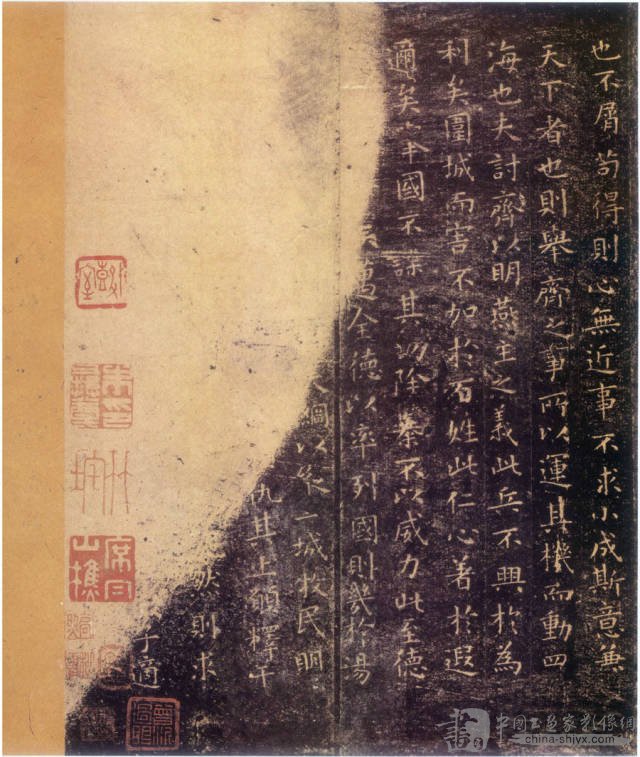 也不屑苟得則心無近事不求小成斯意兼
天下者也則舉齊之事所以運其機而動四
海也夫討齊以明燕主之義此兵不興於為
利矣圍城而害不加於百姓此仁心著於遐
邇矣國不謀其功除暴不以威力此至德
邁全德以率列國則幾於湯
綱以縱一城牧民明
仇其上願釋干
然則求
子適
中国书画家影像網
china-shjyx.com